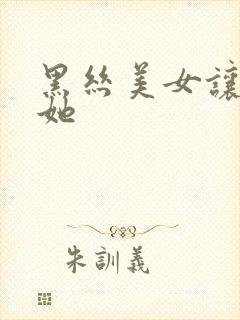 黑絲美女讓
她
朱訓義